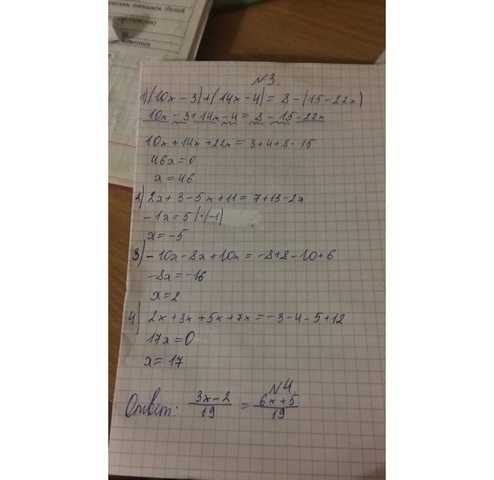 №3.
1) (10x-3)+(14x-4)=8-(15-22x)
10x-3+14x-4=8-15-22x
10x+14x+22x=3+4+8-15
46x=0
x=46
2) 2x+3-5x+11=7+13-2x
-1x=5 | · (-1)
x=-5
3) -10x-8x+10x=-8+8-10+6
-8x=-16
x=2
4) 2x+3x+5x+7x=-3-4-5+12
17x=0
x=17
№4.
Ответ: 3x-2/19 = 6x+5/19